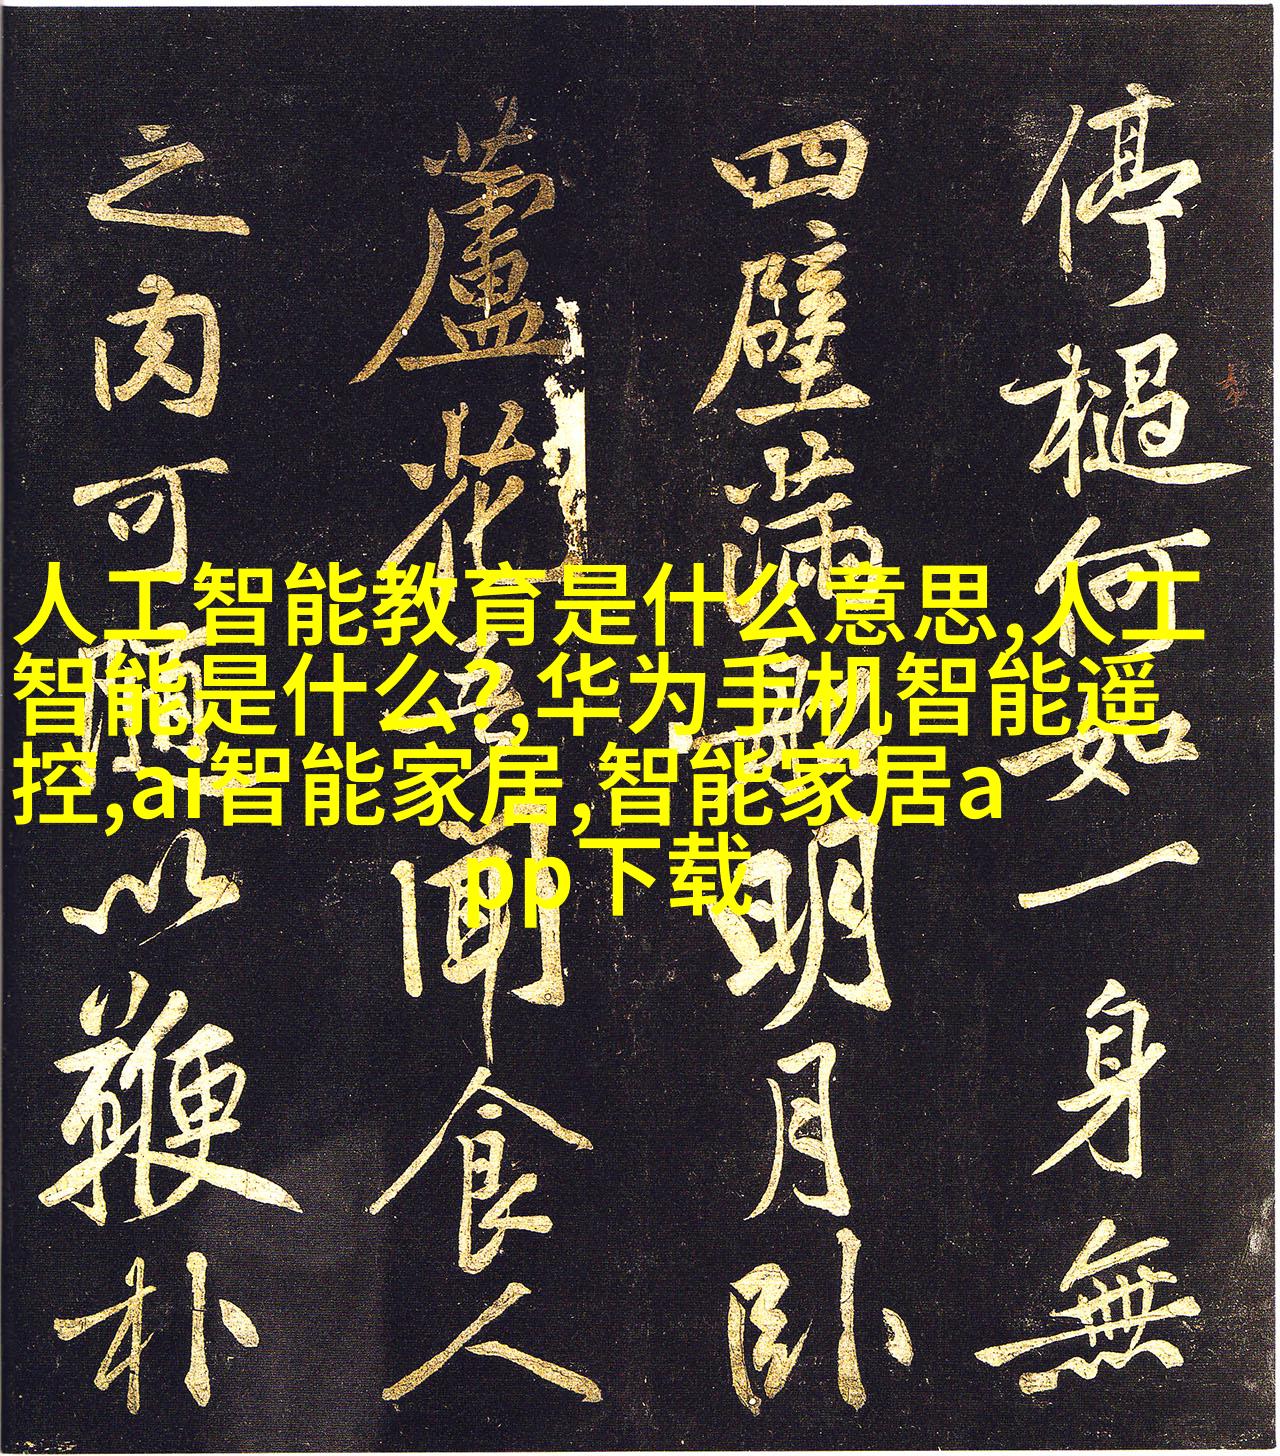 停檛何如一身無
四壁滿明月卧
蘆花吾聞食人
之肉可隨以鞭朴
人工智能教育是什么意思,人工
智能是什么?,华为手机智能遥
控,ai智能家居,智能家居a
pp下载